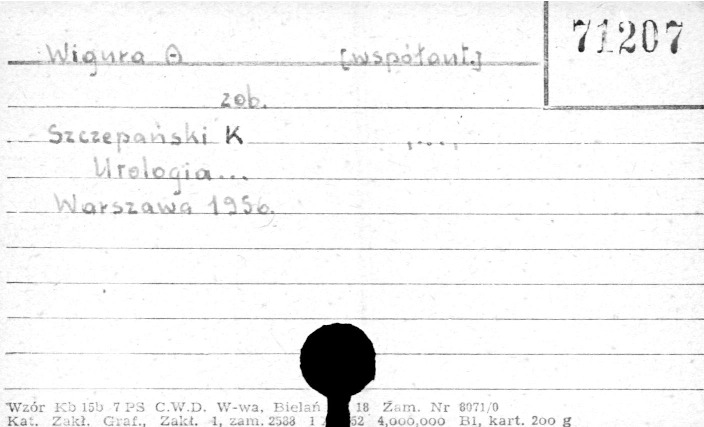 71207
Wigura A [współaut.]
zob.
Szczepański K ,...,
Urologia...
Warszawa 1956.
Wzór Kb 15b 7 PS C.W.D. W-wa, Bielań 18 Zam. Nr 8071/0
Kat. Zakł. Graf., Zakł. 4, zam. 2588 1 52 4,000,000 B1, kart. 200 g